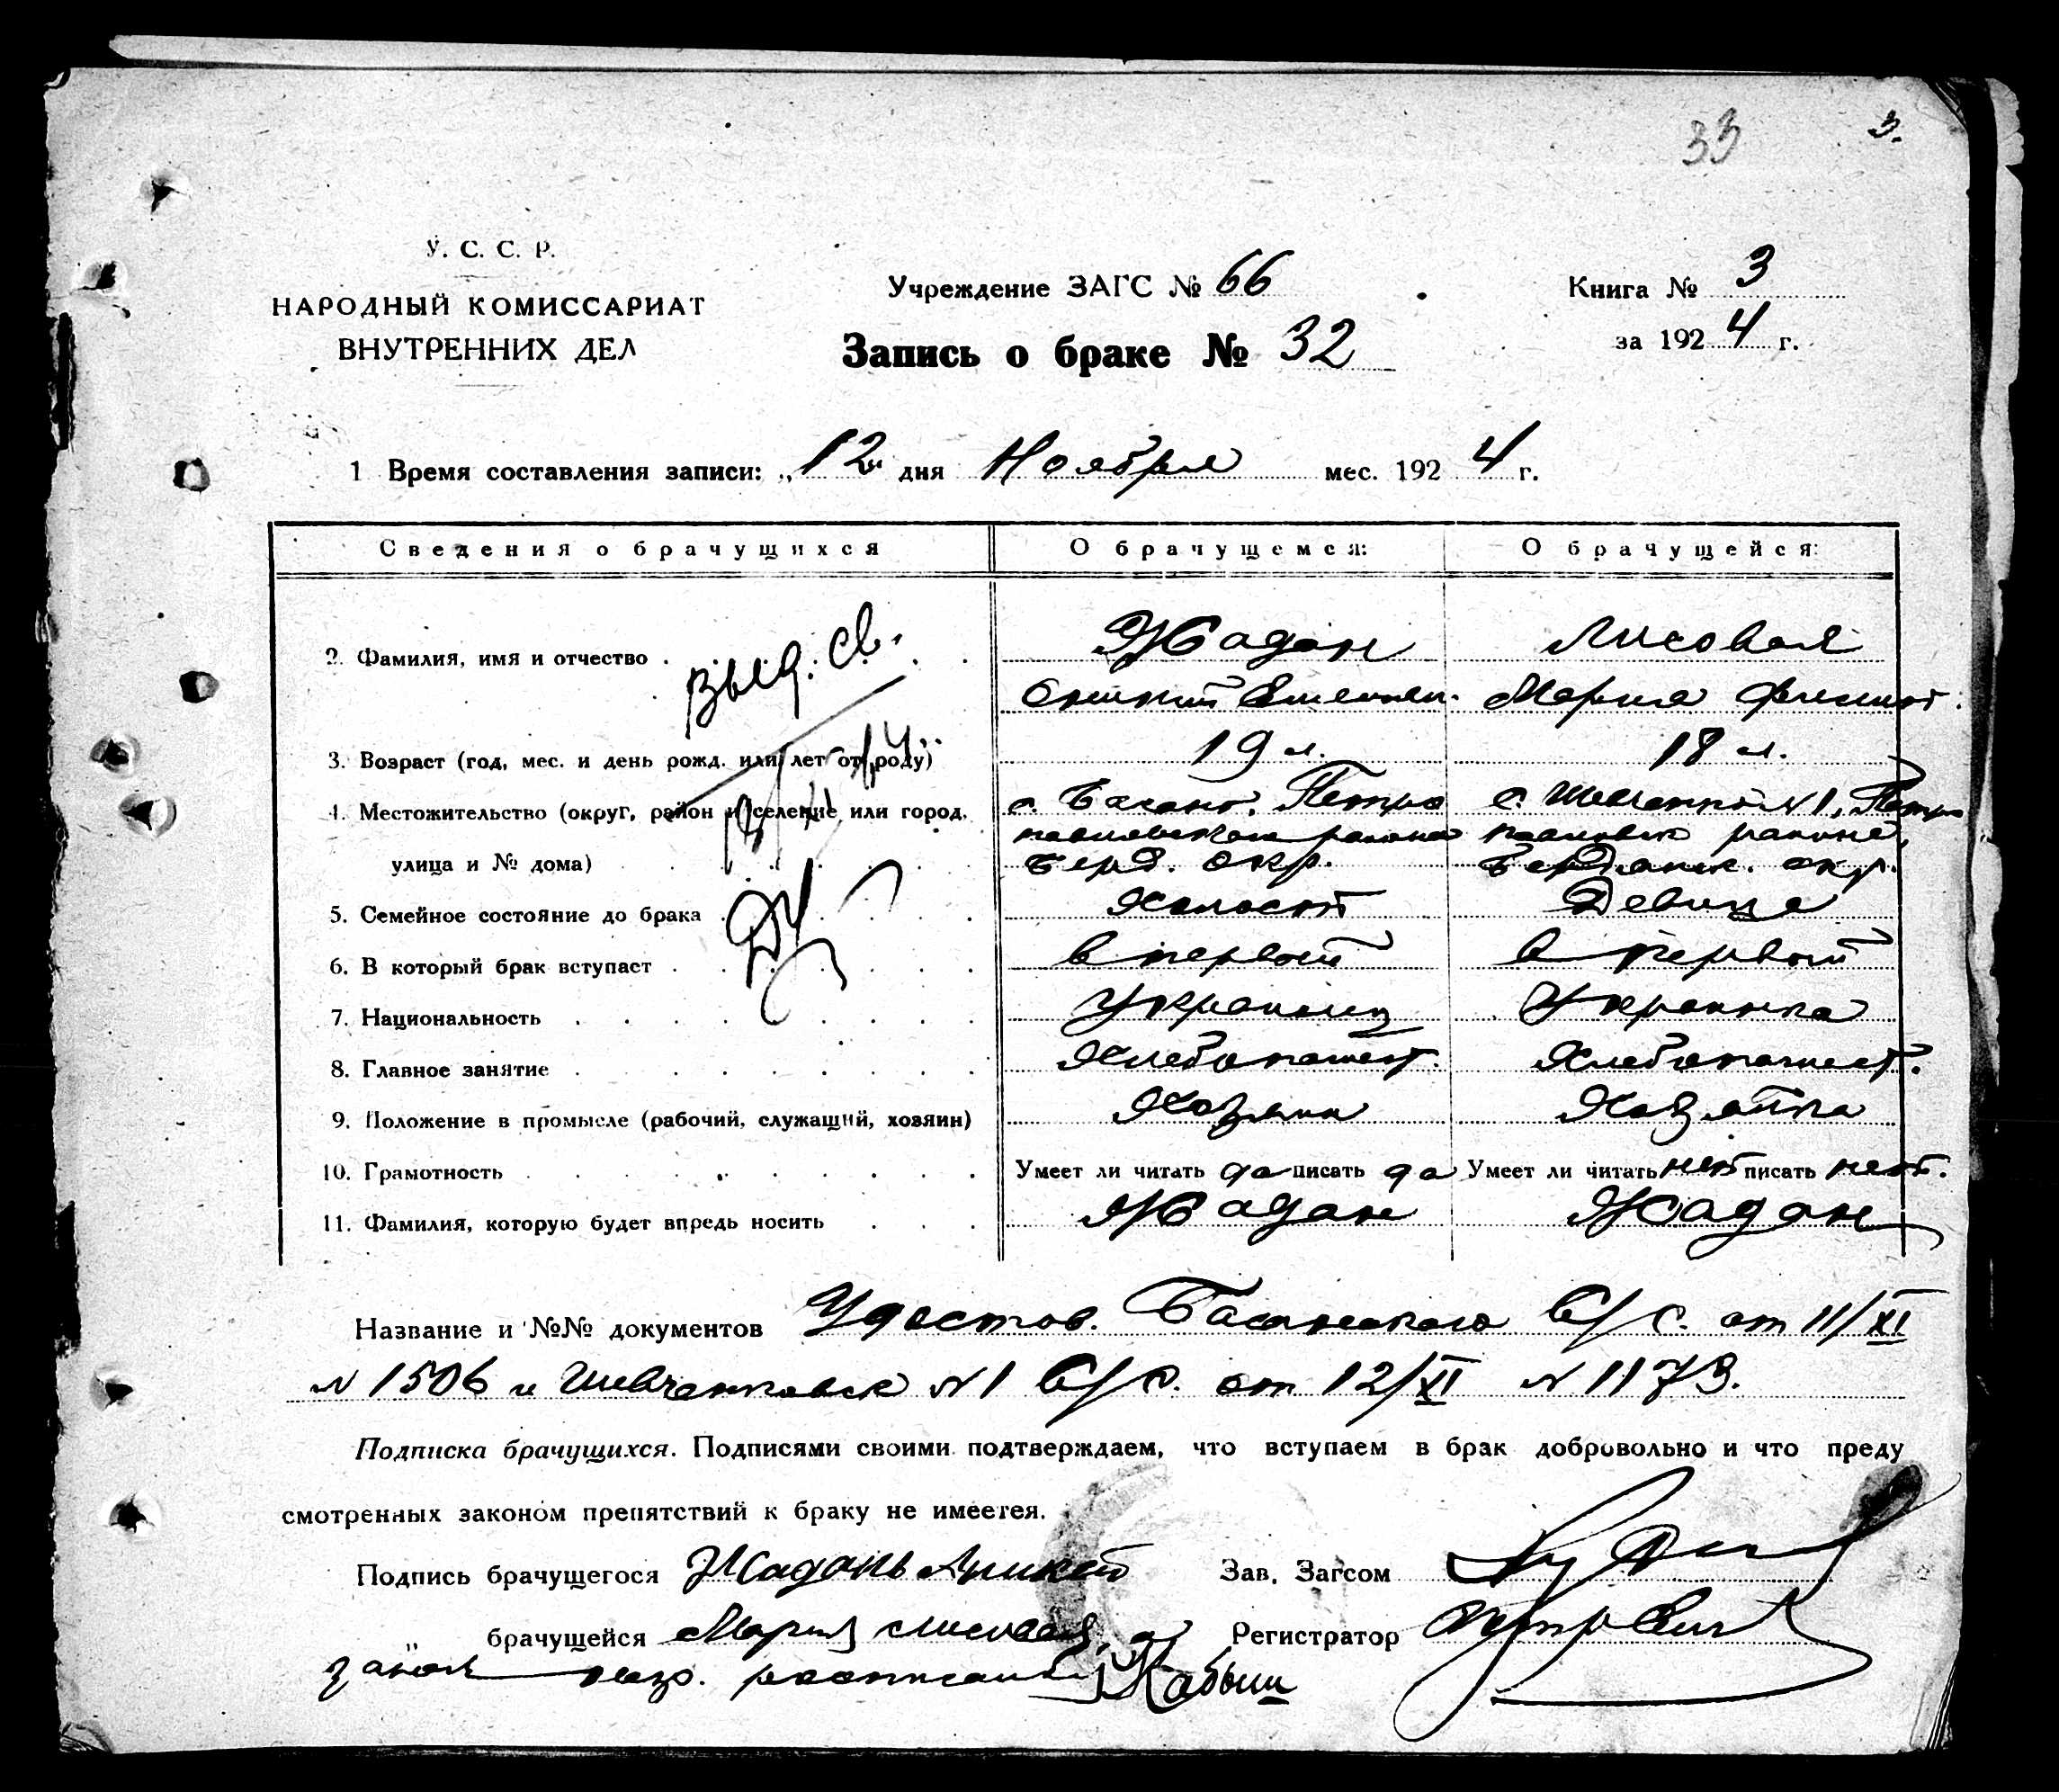 33 3.
У. С. С. Р.
НАРОДНЫЙ КОМИССАРИАТ
ВНУТРЕННИХ ДЕЛ
Учреждение ЗАГС № 66
Запись о браке № 32
Книга № 3
за 1924 г.
1 Время составления записи: „12" дня Ноября мес. 1924 г.
Сведения о брачущихся О брачущемся: О брачущейся:
выд. св.
2. Фамилия, имя и отчество Жадан Лисовая
Мария
3. Возраст (год, мес. и день рожд. или лет от роду) 19 л. 18 л.
4. Местожительство (округ, район и селение или город, с. Басань. Петро с. Шевченко N 1, Петро
павловского района павловск района,
улица и № дома) Берд. окр. Бердянск. окр.
5. Семейное состояние до брака Холост Девица
6. В который брак вступает в первый в первый
7. Национальность Украинец Украинка
8. Главное занятие Хлебопашест. Хлебопашест.
9. Положение в промысле (рабочий, служащий, хозяин) Хозяин Хозяйка
10. Грамотность Умеет ли читать да писать да Умеет ли читать нет писать нет.
11. Фамилия, которую будет впредь носить Жадан Жадан
Название и №№ документов Удостов. Басанского С/С. от 11/XI
N 1506 и Шевченковск N 1 С/С. от 12/XI N 1173.
Подписка брачущихся. Подписями своими подтверждаем, что вступаем в брак добровольно и что преду
смотренных законом препятствий к браку не имеегея.
Подпись брачущегося Жадань Аникей Зав. Загсом
„ брачущейся Мария Лисовая, а Регистратор